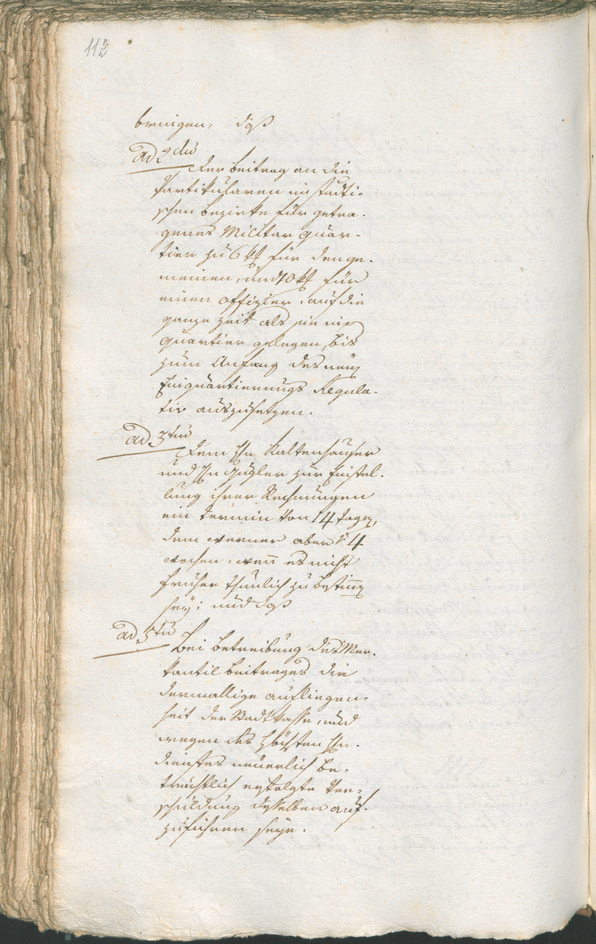 112
bringen, daß
ad 2dum
der Beitrag an die
Partikularen im städti-
schen Bezirke für getra-
genes Militar Quar-
tier zu 6 kr für den ge-
meinen, und 10 kr für
einen Offizier, auf die
ganze Zeit als sie im
Quartier gelegen, bis
zum Anfang des neüen
Einquartierungs Regula-
tiv auszusetzen.
ad 3tium
dem Hn Kaltenhauser
und Hn Gugler zur Einstel-
lung ihrer Rechnungen
ein Termin von 14 Tagen,
dem Werner aber 4
Wochen, wenn es nicht
früher thunlich zu bestimen
sey; und daß
ad 5tum
Bei Betreibung des Mer-
kantil Beitrages die
dermallige
heit der Stadt Kasse, und
wegen des höchsten
dienstes neüerlich be-
trächtlich erfolgte Ver-
schuldung desselben auf-
zuführen seye.